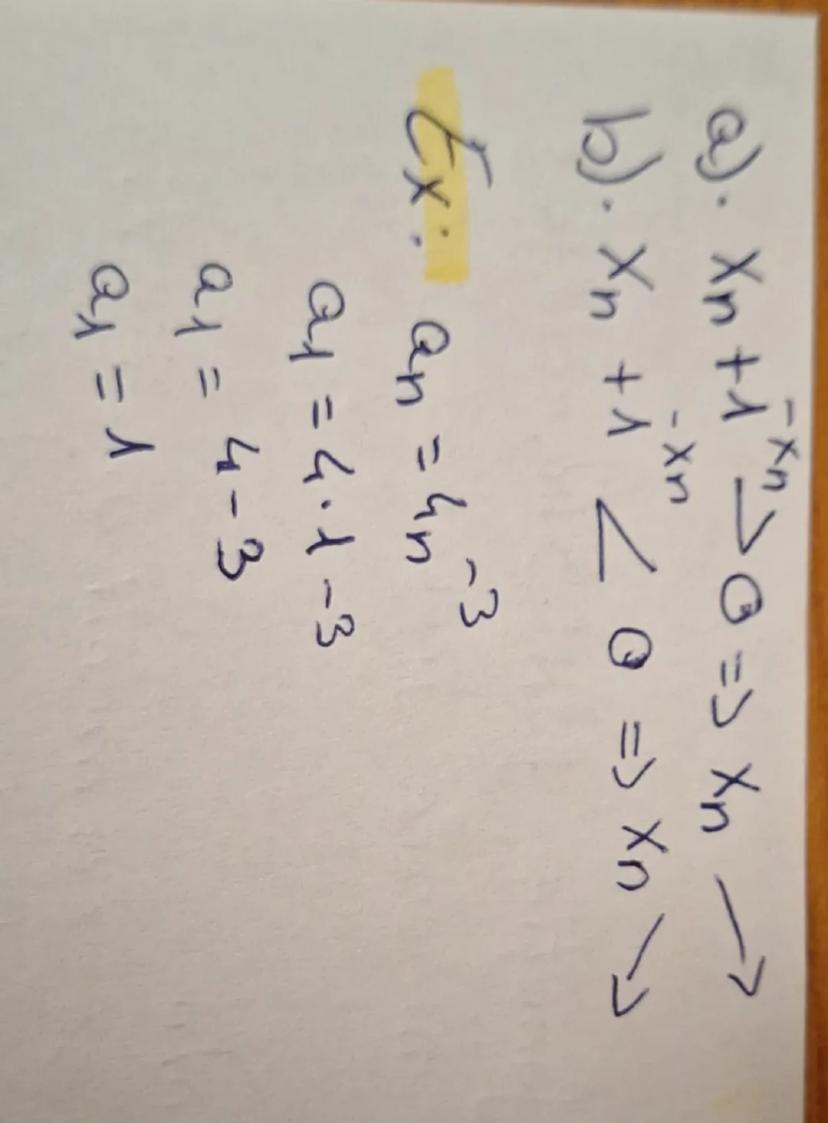 a). xₙ+1 -xₙ > 0 => xₙ ↗
b). xₙ+1 -xₙ < 0 => xₙ ↘
Ex: aₙ = 4n -3
a₁ = 4·1 -3
a₁ = 4-3
a₁ = 1